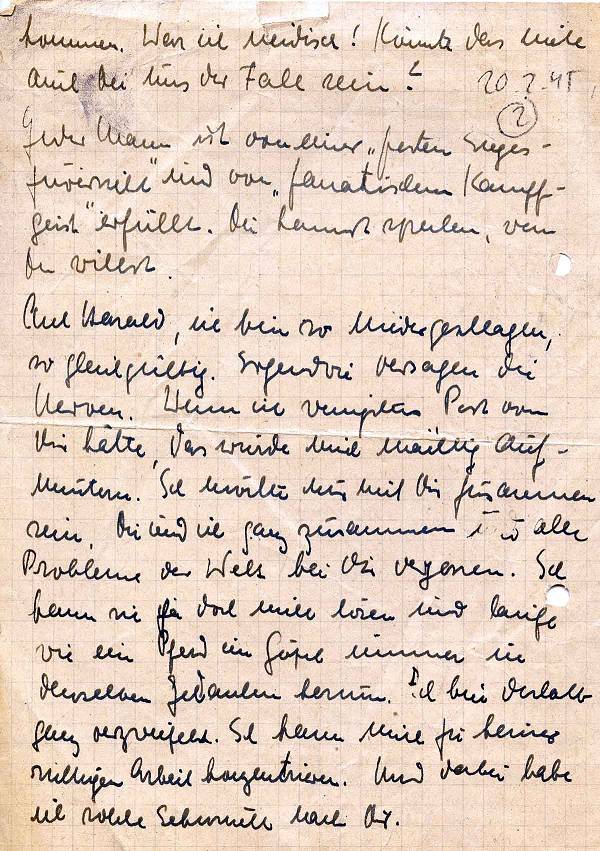 kommen. War ich neidisch! Könnte das nicht
auch bei uns der Fall sein!
20.2.45
2
Jeder Mann ist von einer „festen Sieges-
zuversicht“ und von „fanatischem Kampf-
geist“ erfüllt. Du kannst spucken, wenn
Du willst.
Ach Harald, ich bin so niedergeschlagen,
so gleichgültig. Irgendwie versagen die
Nerven. Wenn ich wenigstens Post von
Dir hätte, das würde mich mächtig auf-
muntern. Ich möchte nur mit Dir zusammen
sein, Du und ich ganz zusammen und alle
Probleme der Welt bei Dir vergessen. Ich
kann sie ja doch nicht lösen und laufe
wie ein Pferd im Göpel immer in
denselben Gedanken herum. Ich bin deshalb
ganz verzweifelt. Ich kann mich zu keiner
richtigen Arbeit konzentrieren. Und dabei habe
ich solche Sehnsucht nach Dir.